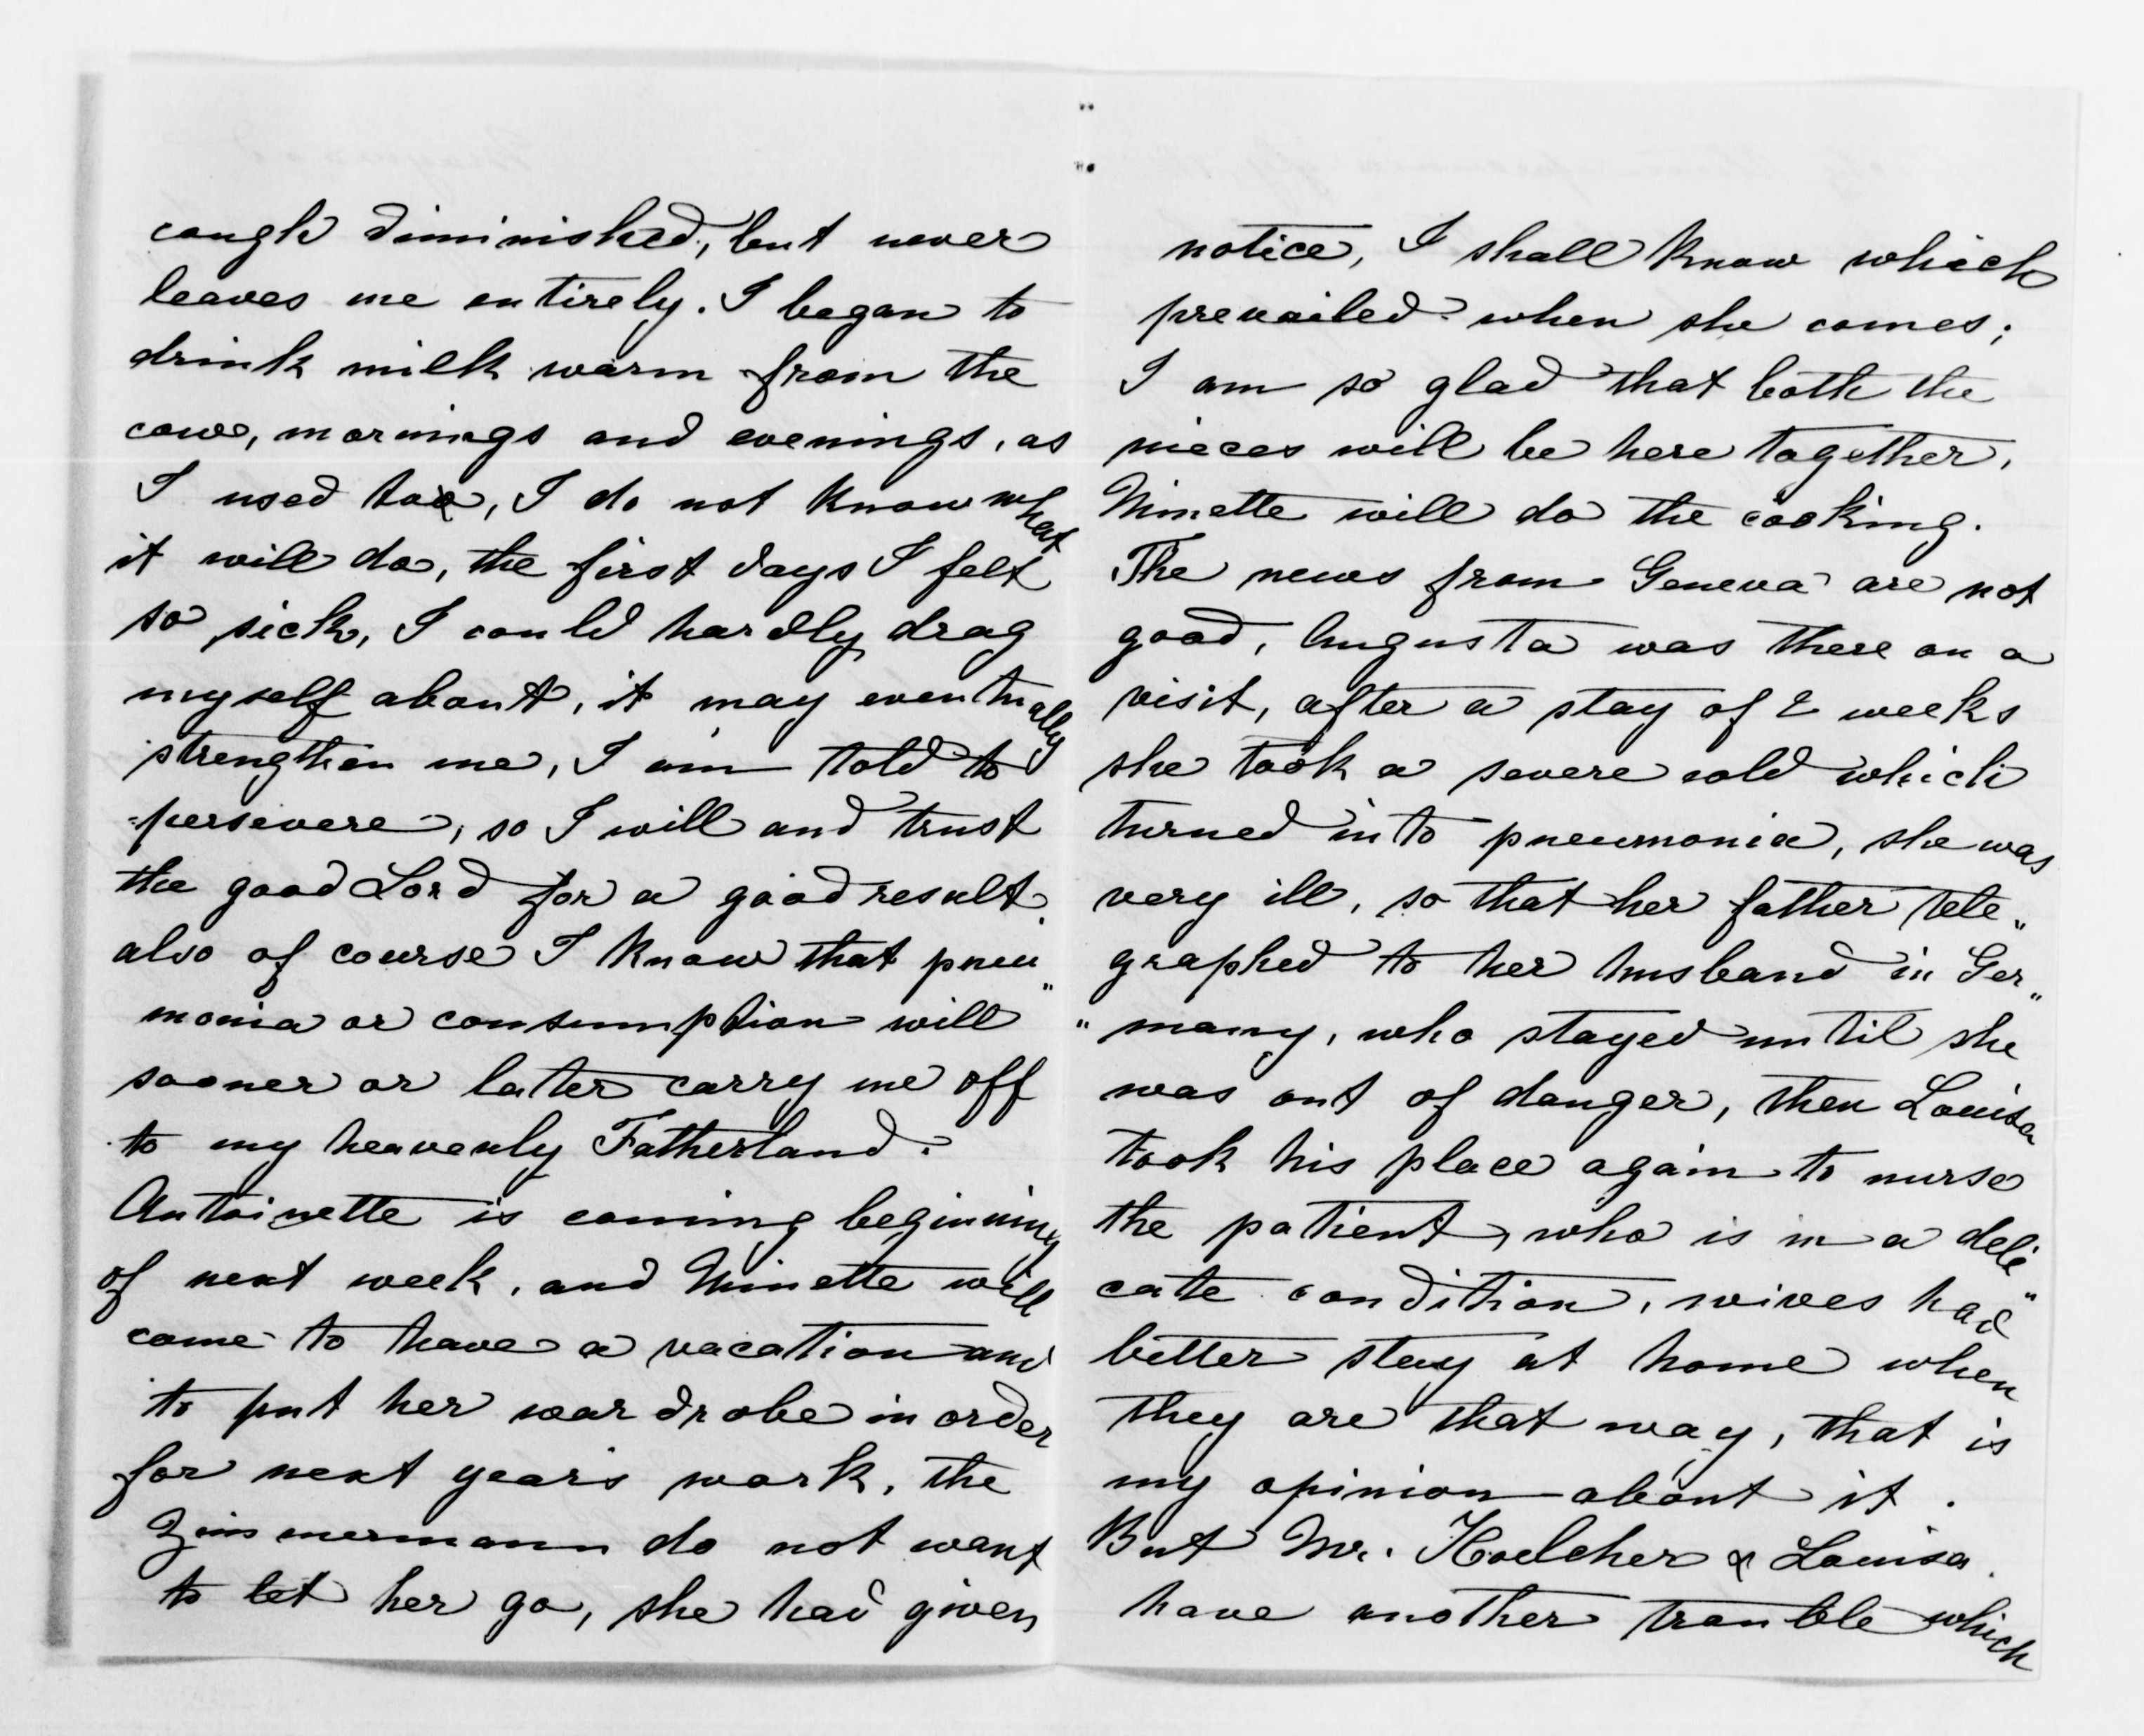 cough diminished, but never
leaves me entirely. I began to
drink milk warm from the
cow, mornings and evenings, as
I used too, I do not know what
it will do, the first days I felt
so sick, I could hardly drag
myself about, it may eventually
strengthen me, I am told to
persevere, so I will and trust
the good Lord for a good result.
also of course I know that pneu„
monia or consumption will
sooner or later carry me off
to my heavenly Fatherland.
Antoinette is coming beginning
of next week, and Ninette will
come to have a vacation and
to put her wardrobe in order
for next year's work, the
Zimmermann do not want
to let her go, she had given
notice, I shall know which
prevailed when she comes;
I am so glad that both the
nieces will be here together,
Ninette will do the cooking.
The news from Geneva are not
good, Augusta was there on a
visit, after a stay of 2 weeks
she took a severe cold which
turned into pneumonia, she was
very ill, so that her father tele„
graphed to her husband in Ger„
"many, who stayed until she
was out of danger, then Louisa
took his place again to nurse
the patient, who is in a deli"
cate condition, wives had
better stay at home when
they are that way, that is
my opinion about it.
But Mr. Hoelcher & Louisa
have another trouble which